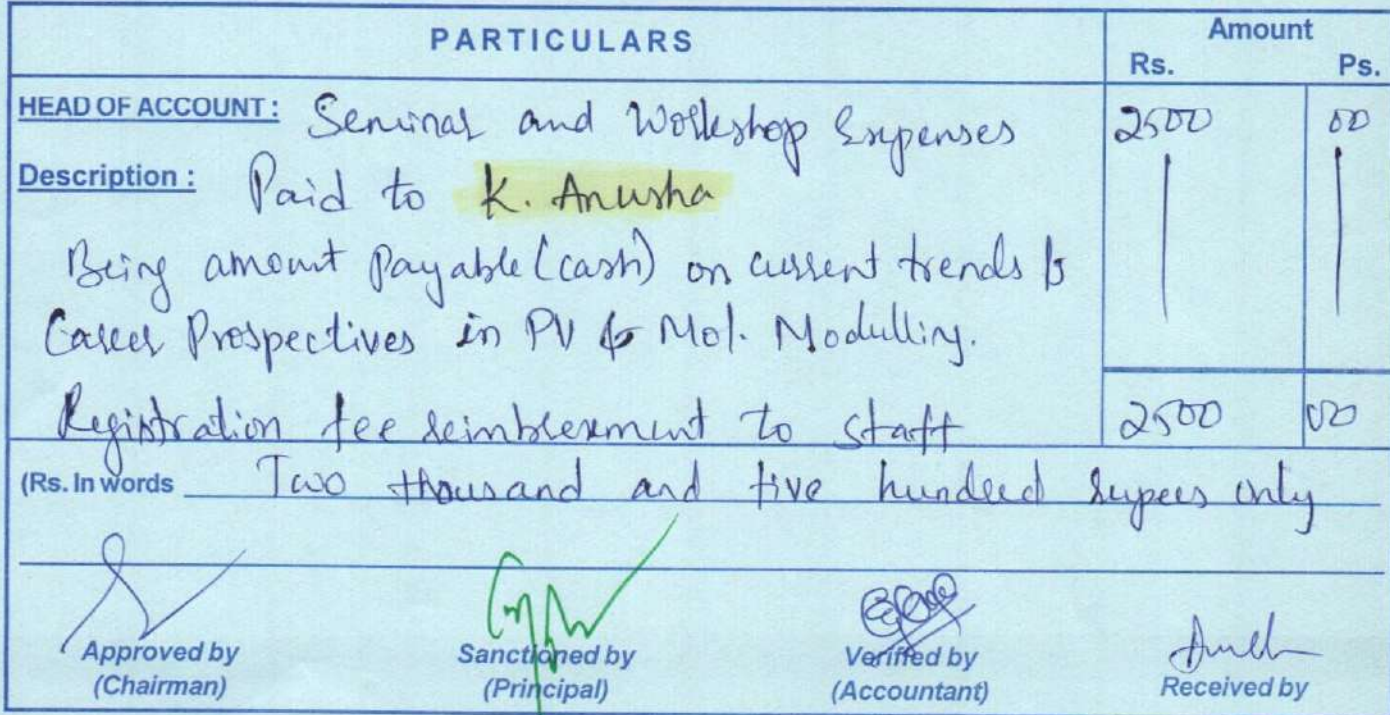 PARTICULARS
Amount
Rs. Ps.
HEAD OF ACCOUNT : Seminar and Workshop Expenses 2500 00
Description : Paid to K. Anusha
Being amount payable (cash) on current trends &
Career Prospectives in PV & Mol. Modulling.
Registration fee reimblesement to staff 2500 00
(Rs. In words Two thousand and five hundred rupees only
Approved by Sanctioned by Verified by Received by
(Chairman) (Principal) (Accountant)